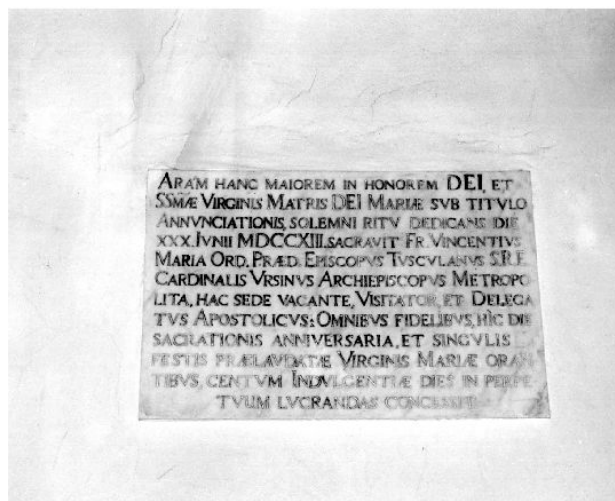 ARAM HANC MAIOREM IN HONOREM DEI, ET
SSMÆ VIRGINIS MATRIS DEI MARIÆ SVB TITVLO
ANNVNCIATIONIS, SOLEMNI RITV DEDICANS DIE
XXX. IVNII MDCCXIII. SACRAVIT FR. VINCENTIVS
MARIA ORD. PRÆD. EPISCOPVS TVSCVLANVS S.R.E.
CARDINALIS VRSINVS ARCHIEPISCOPVS METROPO
LITA, HAC SEDE VACANTE, VISITATOR, ET DELEGA
TVS APOSTOLICVS: OMNIBVS FIDELIBVS, HIC DIE
SACRATIONIS ANNIVERSARIA, ET SINGVLIS
FESTIS PRÆLAVDATÆ VIRGINIS MARIÆ ORAN
TIBVS, CENTVM INDVLGENTIÆ DIES IN PERPE
TVUM LVCRANDAS CONCESSIT